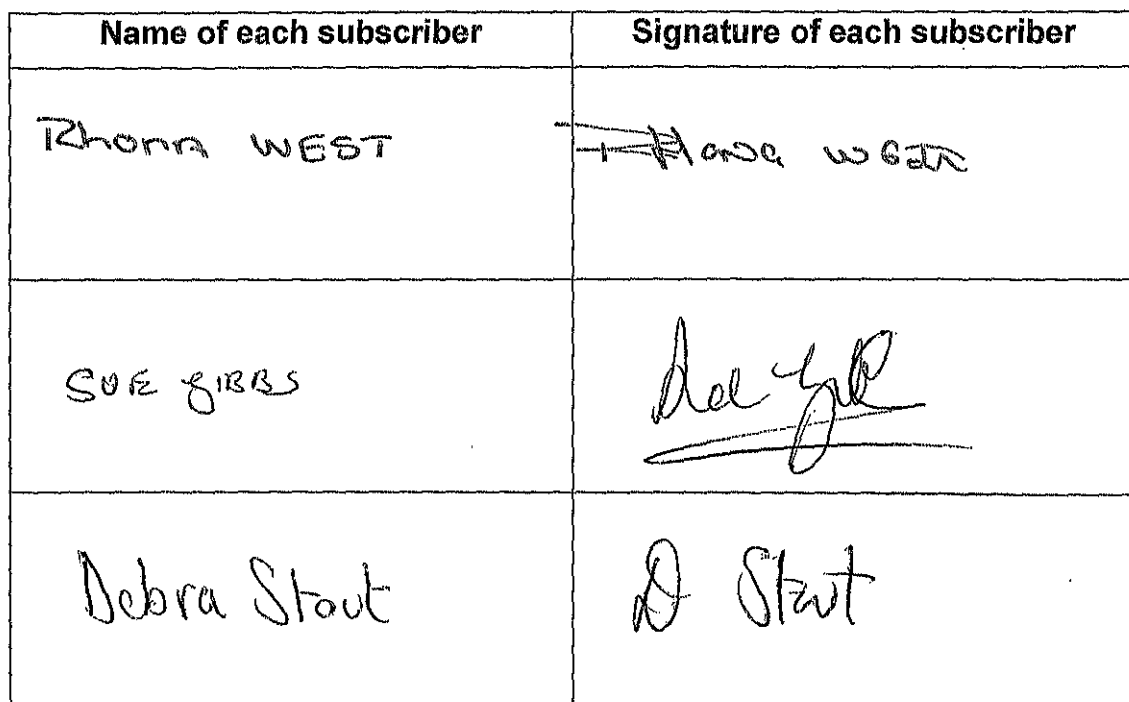 Name of each subscriber Signature of each subscriber
Rhona WEST
SUE GIBBS
Debra Stout D Stout